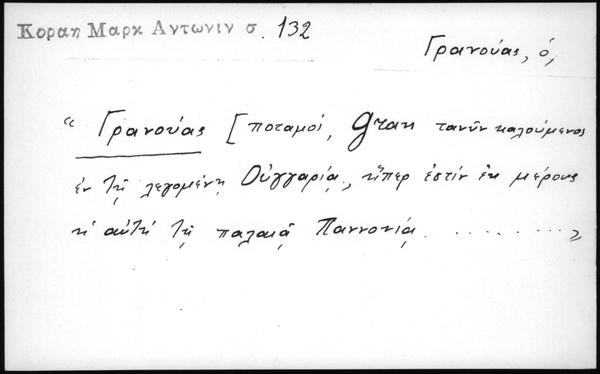 Κοραη Μαρκ Αντωνιν σ. 132
Γρανούας, ὁ,
“ Γρανούας [ποταμοί, Gran τανῦν καλούμενος
ἐν τῇ λεγομένῃ Οὑγγαρίᾳ, ἥπερ ἐστίν ἐκ μέρους
ἡ αὐτή τῇ παλαιᾷ Παννονίᾳ ........ „